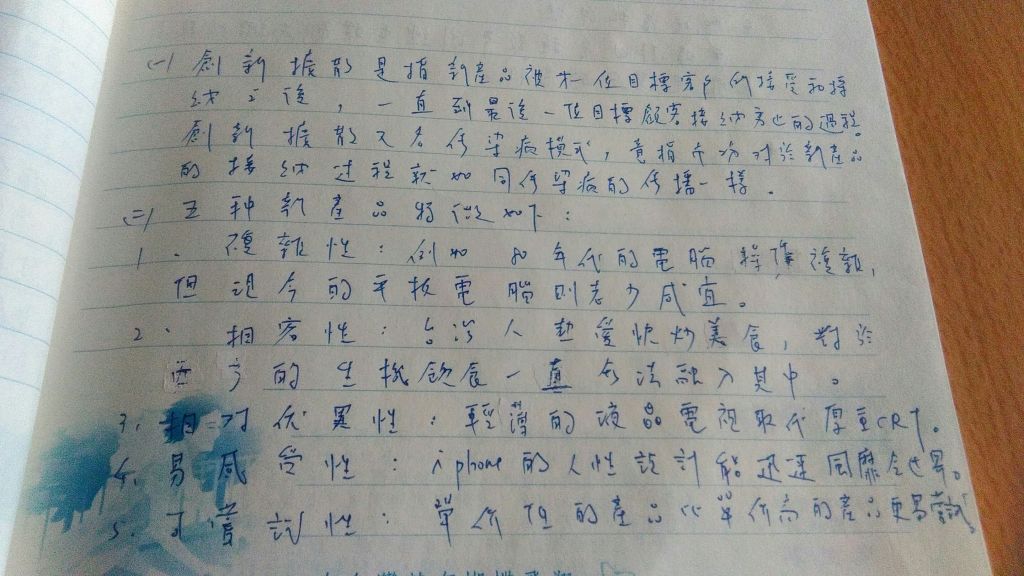 (一) 創新擴散是指新產品被第一位目標客戶所接受和採
納之後，一直到最後一位目標顧客接納為止的過程。
創新擴散又名傳染病模式，意指市場對於新產品
的接納过程就如同傳染病的傳播一樣。
(二) 五种新產品特徵如下：
1. 複雜性：例如80年代的電腦操作複雜，
但現今的平板電腦則老少咸宜。
2. 相容性：台灣人熱愛快炒美食，對於
西方的生機飲食一直無法融入其中。
3. 相對优異性：輕薄的液晶電視取代厚重CRT。
4. 易感受性：iphone的人性設計能迅速風靡全世界。
5. 可嘗試性：單价低的產品比單价高的產品更易嘗試